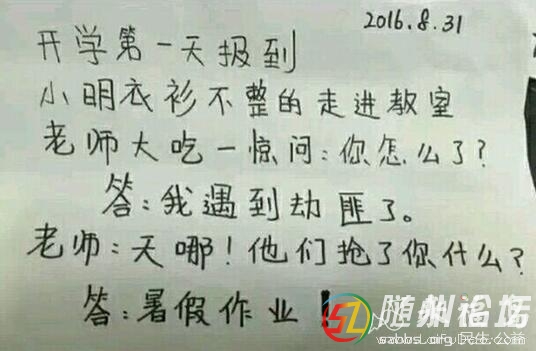 2016.8.31
开学第一天报到
小明衣衫不整的走进教室
老师大吃一惊问:你怎么了?
答:我遇到劫匪了。
老师:天哪!他们抢了你什么?
答:暑假作业
民生公益